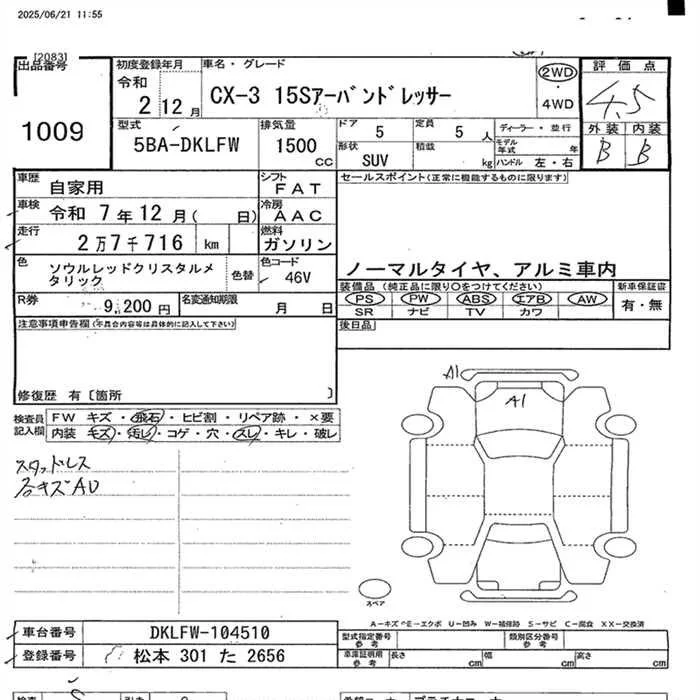 2025/06/21 11:55
[2083]
出品番号
1009
初度登録年月
令和
2 12月
車名・グレード
CX-3 15Sアーバンドレッサー
2WD
・
4WD
評価点
4.5
外装 内装
B B
型式
5BA-DKLFW
排気量
1500
cc
ドア
5
定員
5 人
形状
SUV
積載
kg
ディーラー・並行
モデル年式 年
ハンドル 左・右
車歴
自家用
シフト
FAT
車検
令和 7年12月( 日)
冷房
AAC
走行
2万7千716 km
燃料
ガソリン
色
ソウルレッドクリスタルメタリック
色替
色コード
46V
R券
9,200円
名変通知期限
月 日
セールスポイント(正常に機能するものに限ります)
ノーマルタイヤ、アルミ車内
装備品 (純正品に限り○をつけてください)
PS PW ABS エアB AW
SR ナビ TV カワ
新車保証書
有・無
後日品
注意事項申告欄(不具合内容等は具体的に記入して下さい)
修復歴 有〔箇所 〕
検査員記入欄
FW キズ・飛石・ヒビ割・リペア跡・×要
内装 キズ・汚レ・コゲ・穴・スレ・キレ・破レ
スタッドレス
各キズAU
A1
A1
スペア
A-キズ E-エクボ U-凹み W-補修跡 S-サビ C-腐食 XX-交換済
車台番号
DKLFW-104510
登録番号
松本 301 た 2656
型式指定番号
参考
類別区分番号
参考
車庫証明用
参考
長さ cm
幅 cm
高さ cm